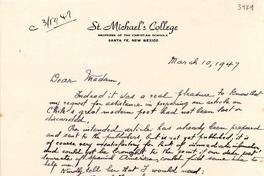 c 3/17/47
St. Michael's College
BROTHERS OF THE CHRISTIAN SCHOOLS
SANTA FE, NEW MEXICO
March 10, 1947
Dear Madam,
Indeed it was a real pleasure to know that
my request for assistance in preparing an article on
Chile's great modern poet had not been lost or
discarded.
The intended article has already been prepared
and sent to the publishers, but is not yet published, it is
of course very
Spanish American, could find some
help me.
Kindly tell her that I would need: